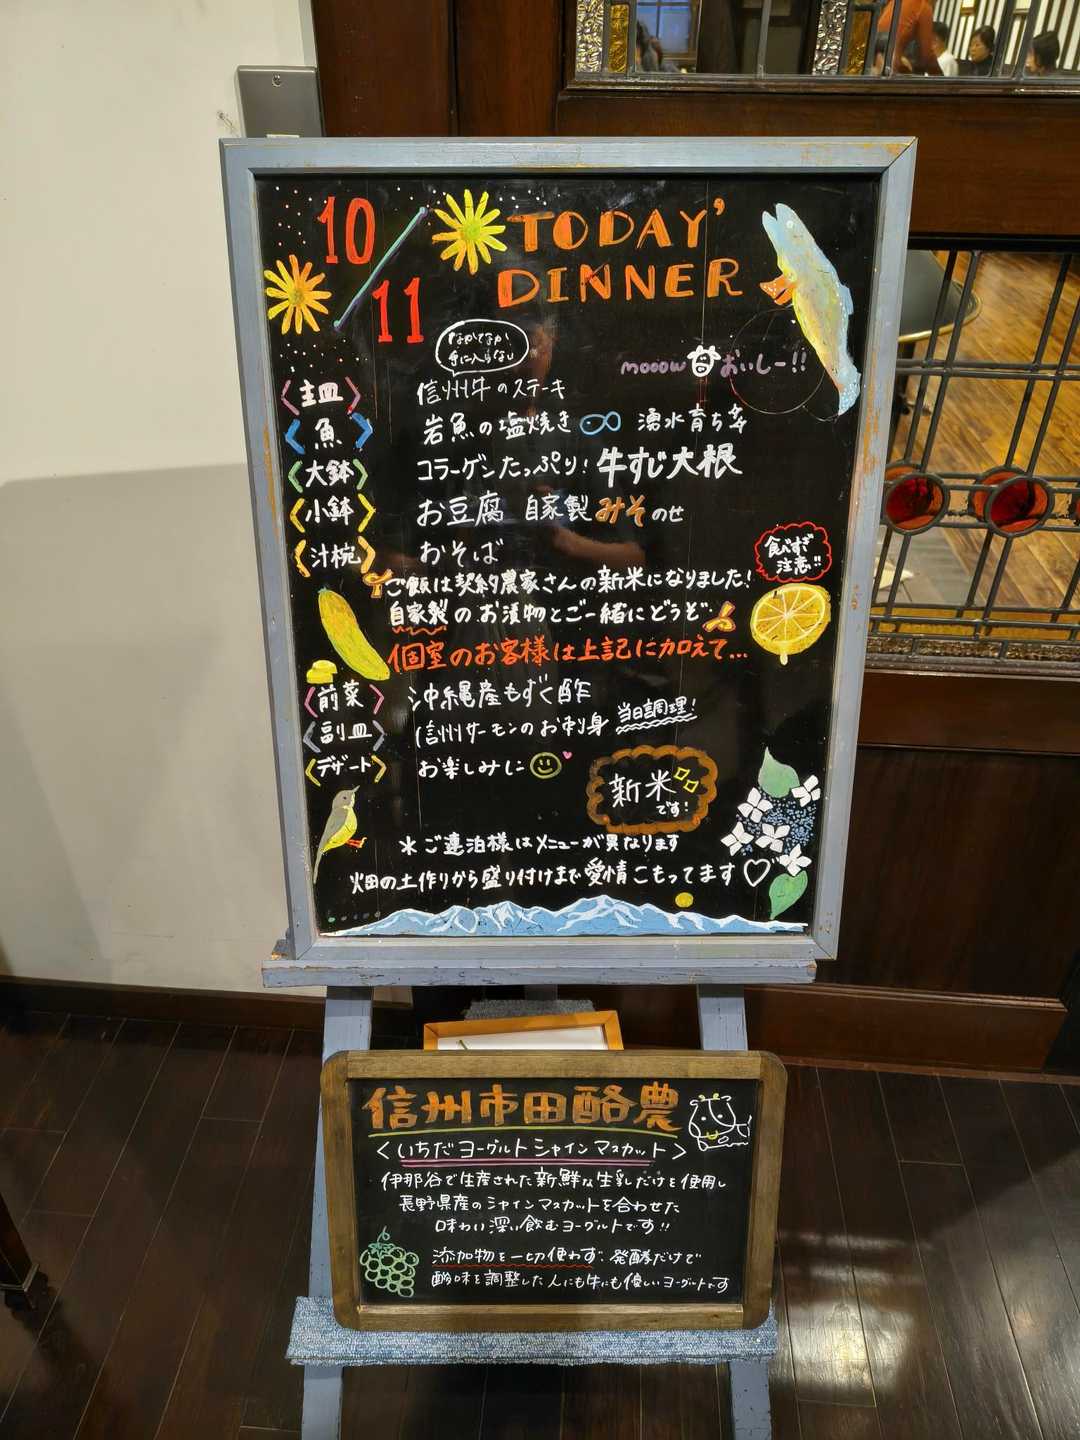 10
11
TODAY'
DINNER
なかなか
手に入らない
mooow おいしー!!
〈主皿〉 信州牛のステーキ
〈魚〉 岩魚の塩焼き 湧水育ち
〈大鉢〉 コラーゲンたっぷり! 牛すじ大根
〈小鉢〉 お豆腐 自家製みそのせ
〈汁椀〉 おそば
食べすぎ
注意!!
ご飯は契約農家さんの新米になりました!
自家製のお漬物とご一緒にどうぞ
個室のお客様は上記に加えて…
〈前菜〉 沖縄産もずく酢
〈副皿〉 信州サーモンのお刺身 当日調理!
〈デザート〉 お楽しみに
新米
です!
*ご連泊様はメニューが異なります
畑の土作りから盛り付けまで愛情こもってます♡
信州市田酪農
<いちだヨーグルトシャインマスカット>
伊那谷で生産された新鮮な生乳だけを使用し
長野県産のシャインマスカットを合わせた
味わい深い飲むヨーグルトです!!
添加物を一切使わず、発酵だけで
酸味を調整した人にも牛にも優しいヨーグルトです